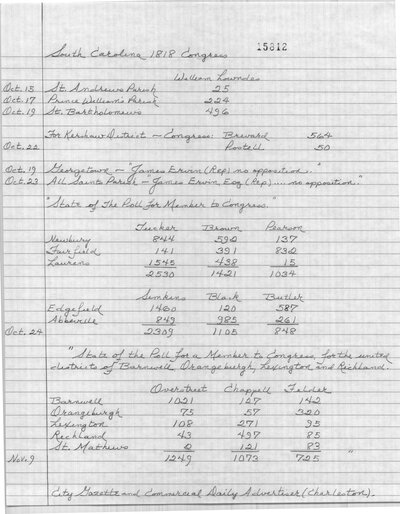 South Carolina 1818 Congress 15812
William Lowndes
Oct. 15 St. Andrews Parish 25
Oct. 17 Prince Williams Parish 224
Oct. 19 St. Bartholomews 496
For Kershaw District - Congress: Brevard 564
Oct. 22 Postell 50
Oct. 19 Georgetown - "James Ervin (Rep) no opposition."
Oct. 23 All Saints Parish - "James Ervin, Esq (Rep).... no opposition."
"State of The Poll for Member to Congress."
Tucker Brown Pearson
Newbury 844 592 137
Fairfield 141 391 882
Laurens 1545 438 15
2530 1421 1034
Simkins Black Butler
Edgefield 1460 120 587
Abbeville 849 985 261
Oct. 24 2309 1105 848
"State of the Poll for a Member to Congress, for the united
districts of Barnwell, Orangeburgh, Lexington and Richland.
Overstreet Chappell Felder
Barnwell 1021 127 142
Orangeburgh 75 57 320
Lexington 108 271 95
Richland 43 497 85
St. Mathews 2 121 83
Nov. 9 1249 1073 725 "
City Gazette and Commercial Daily Advertiser (Charleston).